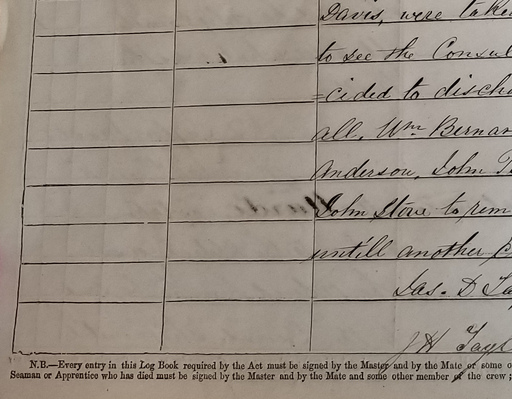 Davis, were take
to see the Consul
=cided to disch
all, Wm Bernar
Anderson, John
John Stone to rem
untill another
Jas. D Ta
J H Tayl
N.B.—Every entry in this Log Book required by the Act must be signed by the Master and by the Mate or some o
Seaman or Apprentice who has died must be signed by the Master and by the Mate and some other member of the crew;